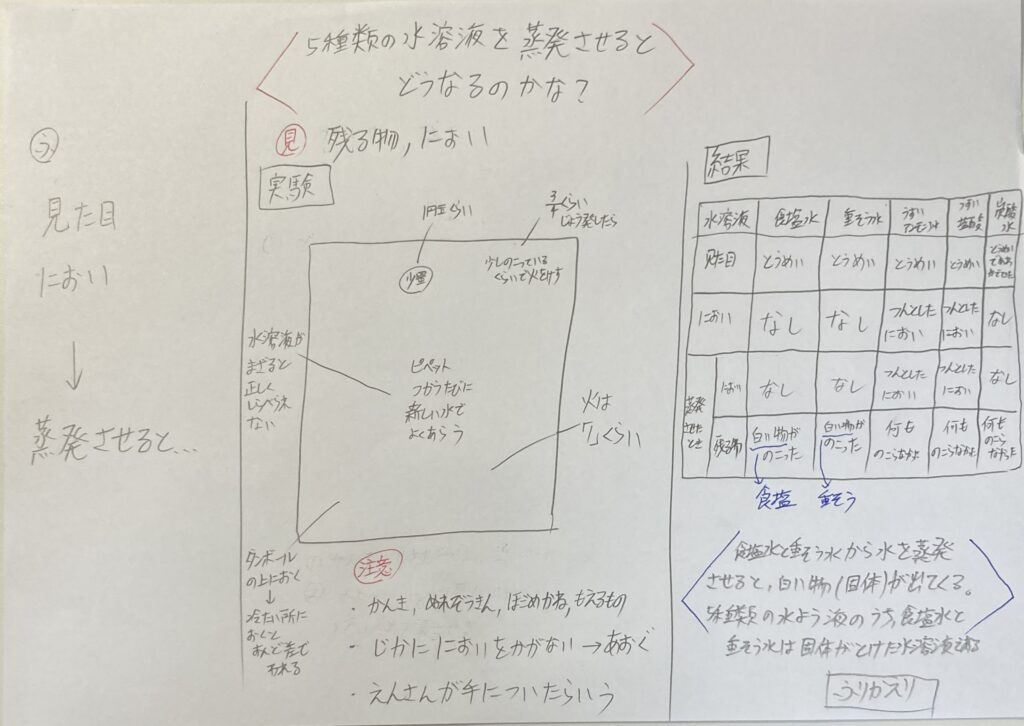 5種類の水溶液を蒸発させると
どうなるのかな?
ふ
見た目
におい
↓
蒸発させると...
見 残る物,におい
実験
1円玉くらい
少量
3/4くらい
じょう発したら
少しのこっている
くらいで火をけす
水溶液が
まざると
正しく
しらべられ
ない
ピペット
つかうたびに
新しい水で
よくあらう
火は
くらい
ダンボール
の上におく
↓
冷たい所に
おくと
おんど差で
われる
注意
・かんき,ぬれぞうきん,ほごめがね,もえるもの
・じかににおいをかがない→あおぐ
・えんさんが手についたらいう
結果
水溶液 食塩水 重そう水 うすいアンモニア水 うすい塩酸 炭酸水
見た目 とうめい とうめい とうめい とうめい とうめい
におい なし なし つんとしたにおい つんとしたにおい なし
蒸発させたとき におい なし なし つんとしたにおい つんとしたにおい なし
残る物 白い物がのこった 白い物がのこった 何ものこらなかった 何ものこらなかった 何ものこらなかった
食塩 重そう
食塩水と重そう水から水を蒸発
させると,白い物(固体)が出てくる。
5種類の水よう液のうち,食塩水と
重そう水は固体がとけた水溶液である
ふりかえり